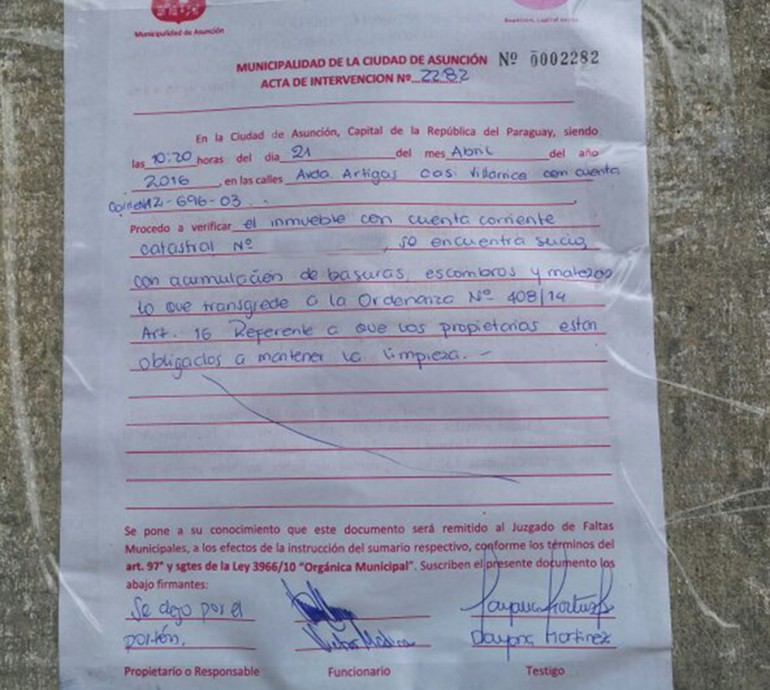 Municipalidad de Asunción
MUNICIPALIDAD DE LA CIUDAD DE ASUNCIÓN Nº 0002282
ACTA DE INTERVENCION Nº 2282
En la Ciudad de Asunción, Capital de la República del Paraguay, siendo
las 10:20 horas del día 21 del mes Abril del año
2016, en las calles Avda. Artigas casi Villarrica con cuenta
12-696-03
Procedo a verificar el inmueble con cuenta corriente
catastral Nº se encuentra sucio,
con acumulación de basuras, escombros y malezas
lo que transgrede a la Ordenanza Nº 408/14
Art. 16 Referente a que los propietarios estan
obligados a mantener la limpieza. -
Se pone a su conocimiento que este documento será remitido al Juzgado de Faltas
Municipales, a los efectos de la instrucción del sumario respectivo, conforme los términos del
art. 97° y sgtes de la Ley 3966/10 "Orgánica Municipal". Suscriben el presente documento los
abajo firmantes:
Se dejo por el
portón.
Dayana Martinez
Propietario o Responsable Funcionario Testigo